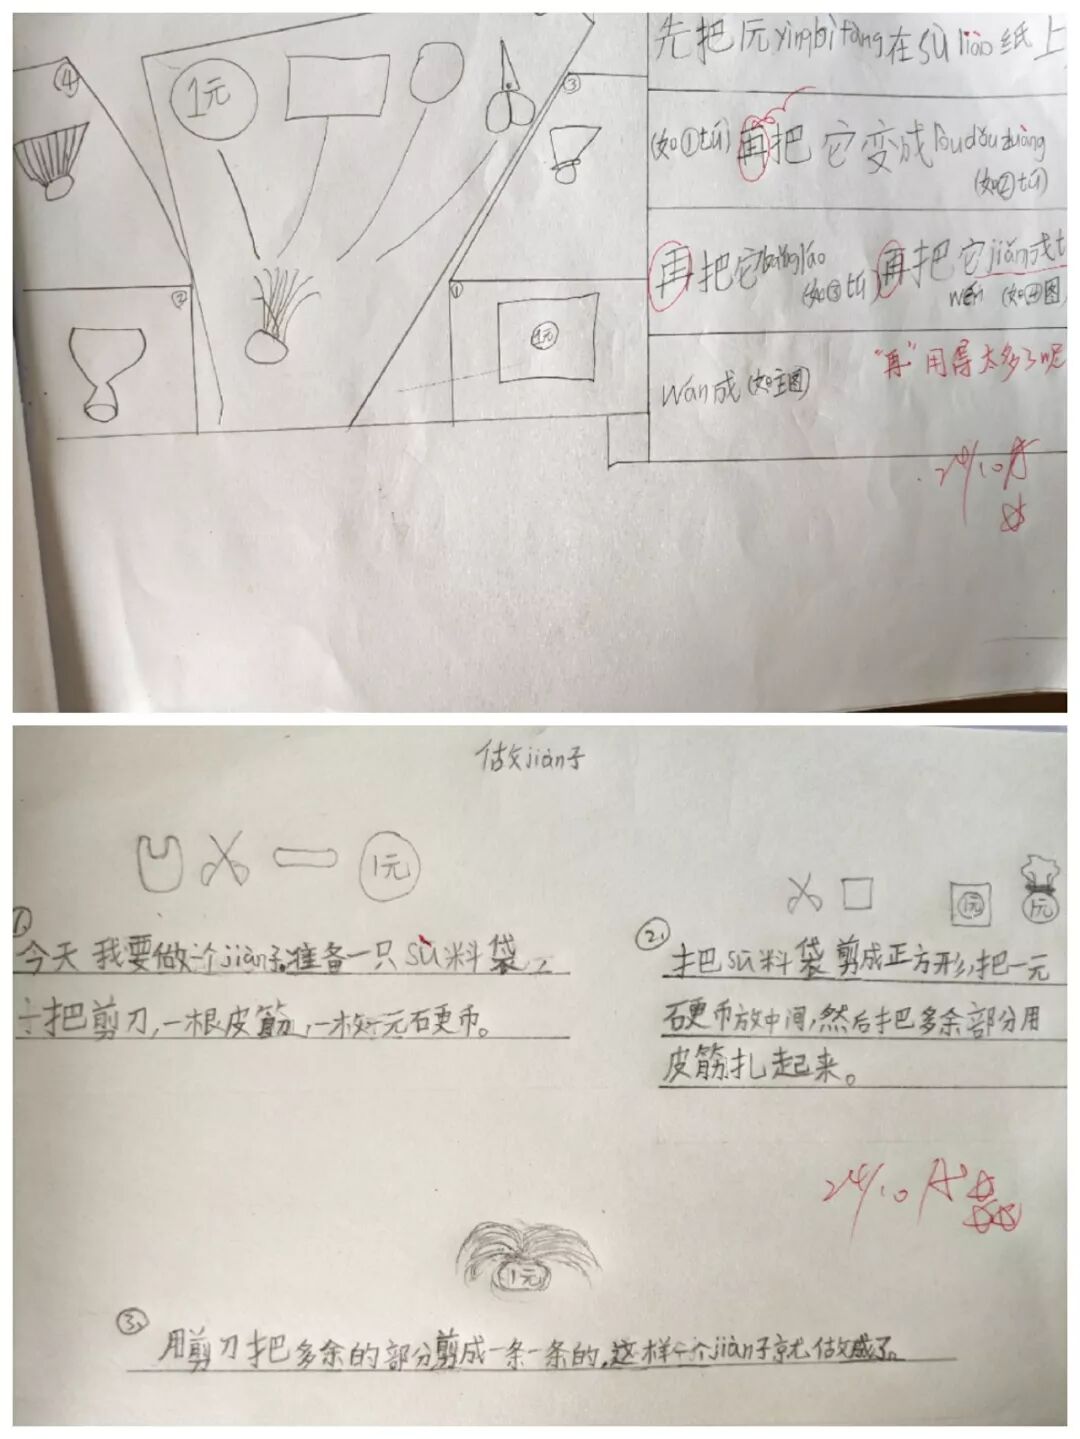 ④
1元
③
②
①
1元
先把1元yìngbì fàng在sù liào纸上
(如①tú)再把它变成lòudǒuzhuàng
(如②tú)
再把它
(如③tú)再把它jiǎn成t
(如④图
"再"用得太多了呢
wán成(如主图)
24/10 A
做jiàn子
1元
1元
1元
1.
今天我要做个jiàn子。准备一只sù料袋,
一把剪刀,一根皮筋,一枚一元硬币。
2.
把sù料袋剪成正方形,把一元
硬币放中间,然后把多余部分用
皮筋扎起来。
24/10 A
1元
3.
用剪刀把多余的部分剪成一条一条的,这样一个jiàn子就做成了。